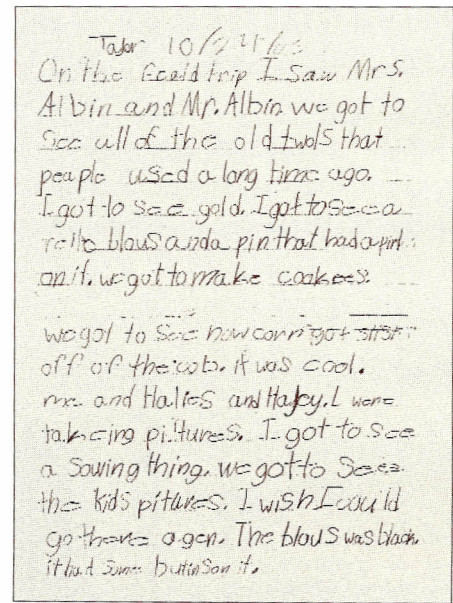 10/24/03
On the feeld trip I saw Mrs.
Albin and Mr. Albin we got to
see all of the old twols that
peaple used a long time ago.
I got to see gold. I got to see a
blaus and a pin that had a
on it. we got to make cookees.
we got to see how corn got
off of the cob. it was cool.
me and Halies and Haley. L were
takeing pitures. I got to see
a sowing thing. we got to see
the kids pitures. I wish I could
go there agen. The blous was black.
it had some butins on it.